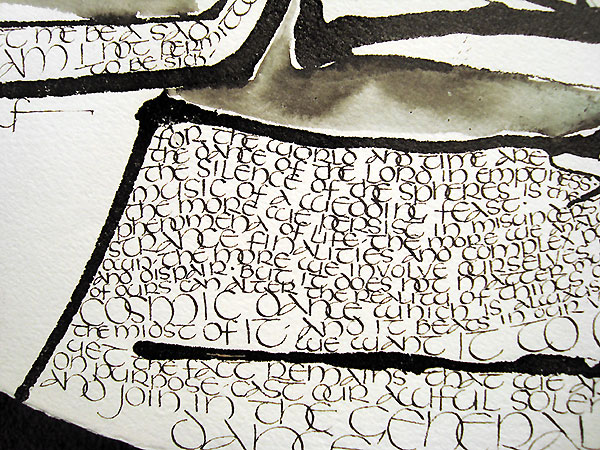 t me be a saxo
am I not permitt
to be sick
f
for the world and time are
the dance of the Lord in emptiness
the silence of the spheres is the
music of a wedding feast.
the more we persist in misunder
phenomena of life, the more we an
strange finalities and complex
own, the more we involve ourselves
and dispair. But it does not matter m
of ours can alter the reality of things,
cosmic dance which is always
the midst of it, and it beats in our
want it to o
yet the fact remains that we a
on purpose cast our awful solem
and join in the general
dance